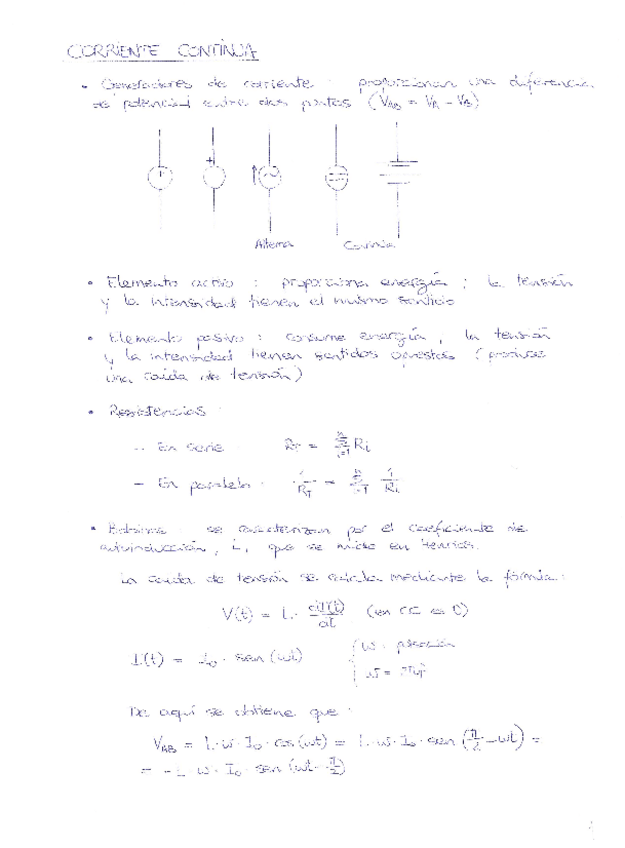 CORRIENTE CONTINUA
• Generadores de corriente : proporcionan una diferencia
de potencial entre dos puntos (V_AB = V_A - V_B)
+
Alterna Continua
• Elemento activo : proporciona energía ; la tensión
y la intensidad tienen el mismo sentido
• Elemento pasivo : consume energía , la tensión
y la intensidad tienen sentidos opuestos (produce
una caída de tensión)
• Resistencias :
- En serie : R_T = Σ_{i=1}^{n} R_i
- En paralelo : 1/R_T = Σ_{i=1}^{n} 1/R_i
• Bobinas : se caracterizan por el coeficiente de
autoinducción, L, que se mide en henrios.
La caída de tensión se calcula mediante la fórmula :
V(t) = L · dI(t)/dt (en CC es 0)
I(t) = I_0 · sen (wt) { w : pulsación
De aquí se obtiene que :
V_AB = L · w · I_0 · cos(wt) = L · w · I_0 · sen (π/2 - wt) =
= - L · w · I_0 · sen (wt - π/2)